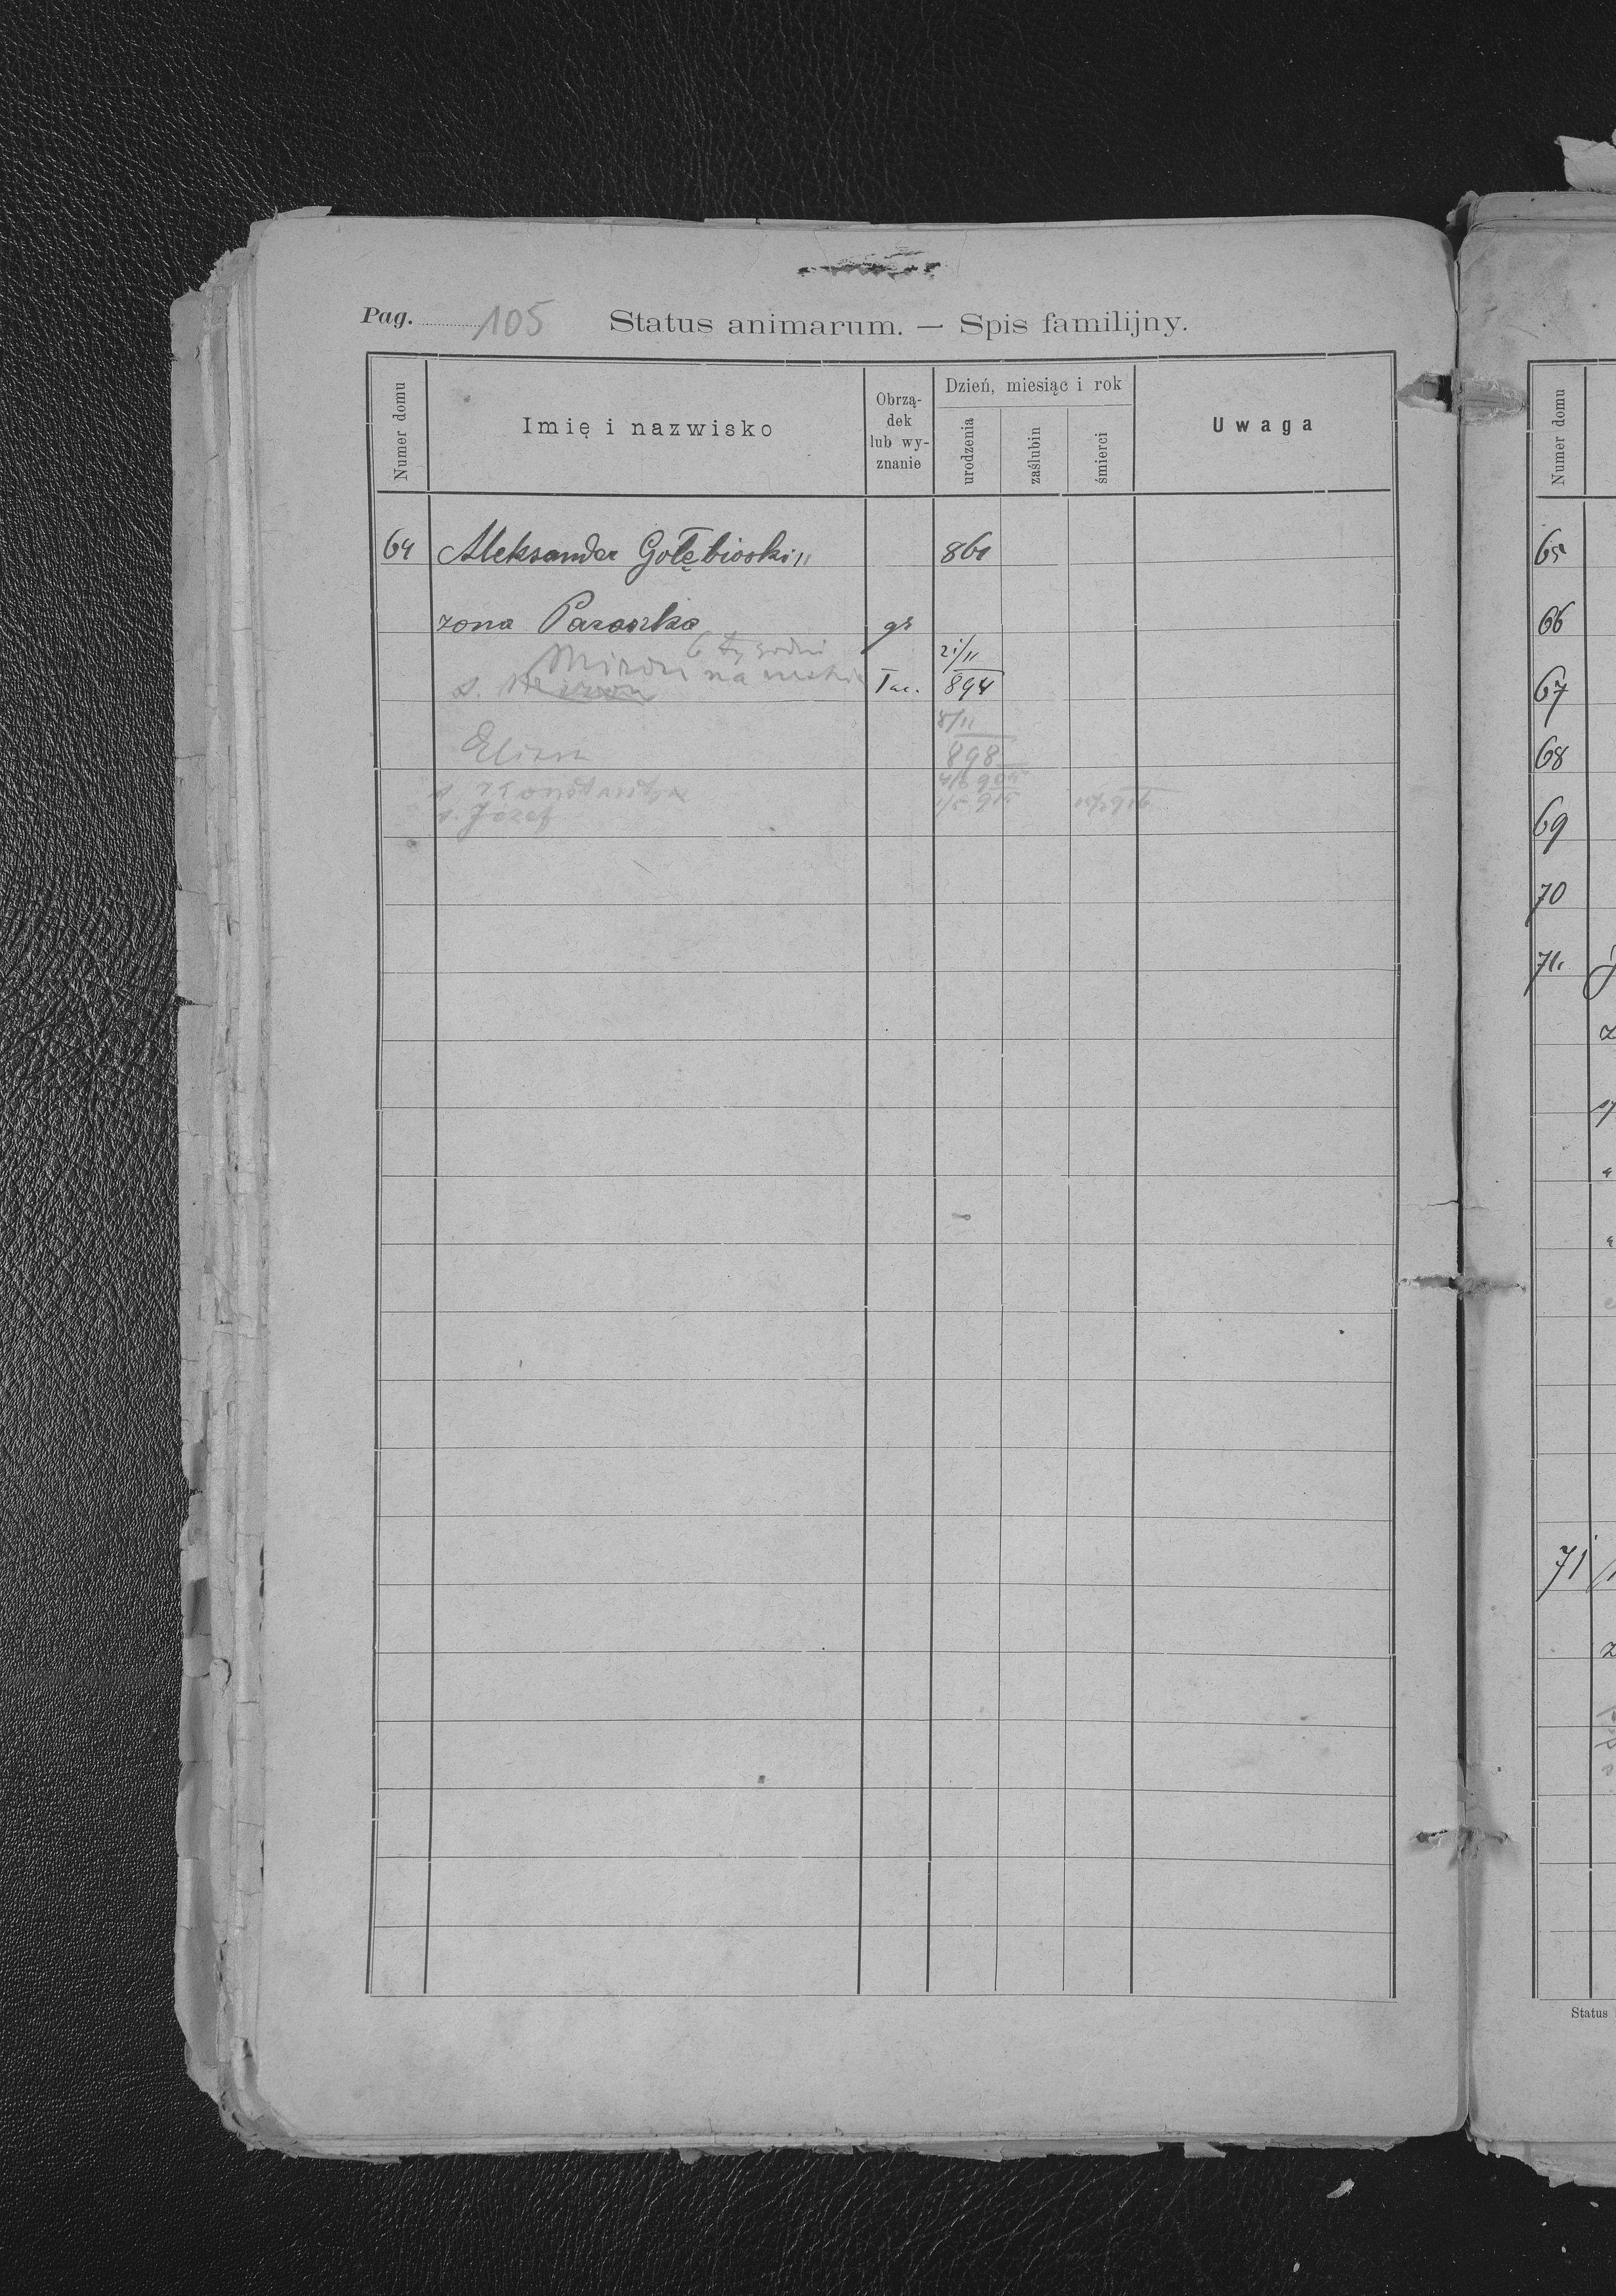 Pag. 105 Status animarum. — Spis familijny.
Numer domu
Imię i nazwisko
Obrzą-
dek
lub wy-
znanie
Dzień, miesiąc i rok
urodzenia
zaślubin
śmierci
Uwaga
64 Aleksander Gołębioski 861
zona Paraszka gr
6 tygodni
Miron na
s. Miron lac. 21/11 894
8/11
Eliasz 898
s. Konstanty
s. Józef 915
Numer domu
65
66
67
68
69
70
71.
71
Status